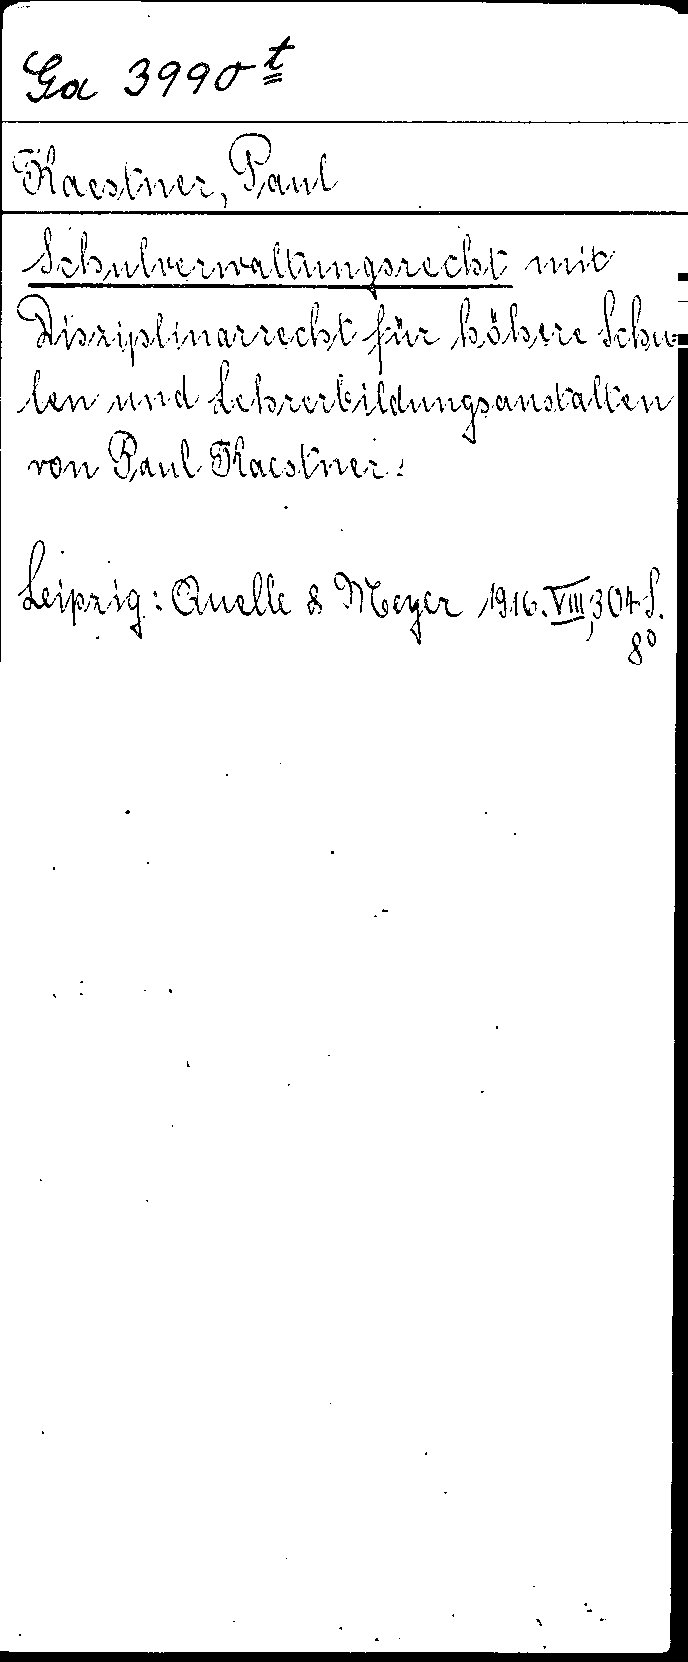 Ga 3990 t
Kaestner, Paul
Schulverwaltungsrecht mit
Disziplinarrecht für höhere Schu-
len und Lehrerbildungsanstalten
von Paul Kaestner.
Leipzig: Quelle & Meyer 1916. VIII, 304 S.
8°